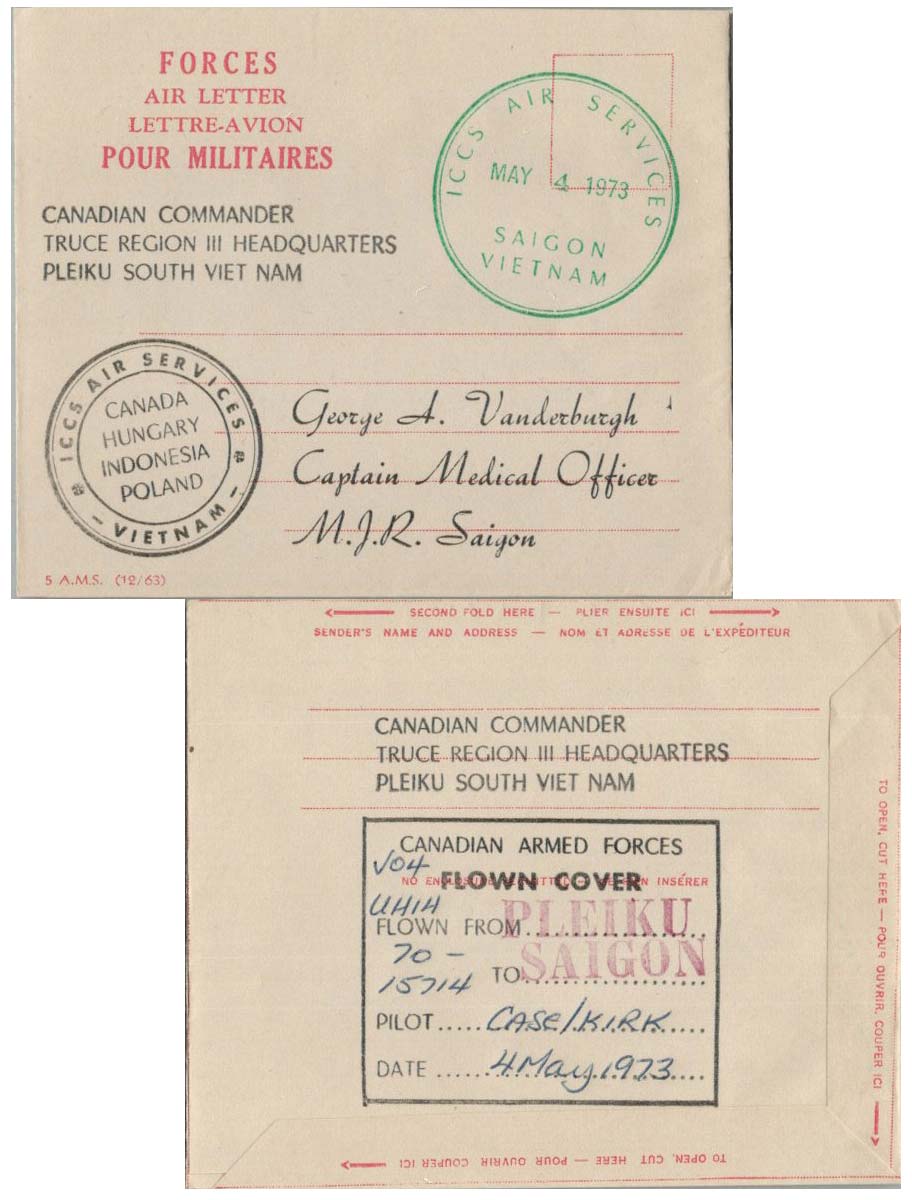 FORCES
AIR LETTER
LETTRE-AVION
POUR MILITAIRES
ICCS AIR SERVICES
MAY 4 1973
SAIGON
VIETNAM
CANADIAN COMMANDER
TRUCE REGION III HEADQUARTERS
PLEIKU SOUTH VIET NAM
ICCS AIR SERVICES
CANADA
HUNGARY
INDONESIA
POLAND
- VIETNAM -
George A. Vanderburgh
Captain Medical Officer
M.J.R. Saigon
5 A.M.S. (12/63)
SECOND FOLD HERE — PLIER ENSUITE ICI
SENDER'S NAME AND ADDRESS — NOM ET ADRESSE DE L'EXPÉDITEUR
CANADIAN COMMANDER
TRUCE REGION III HEADQUARTERS
PLEIKU SOUTH VIET NAM
CANADIAN ARMED FORCES
V04
NO INSÉRER
FLOWN COVER
UH1H
FLOWN FROM PLEIKU
70 -
15714
TO SAIGON
PILOT CASE/KIRK
DATE 4 May 1973
TO OPEN, CUT HERE — POUR OUVRIR, COUPER ICI
TO OPEN, CUT HERE — POUR OUVRIR COUPER ICI